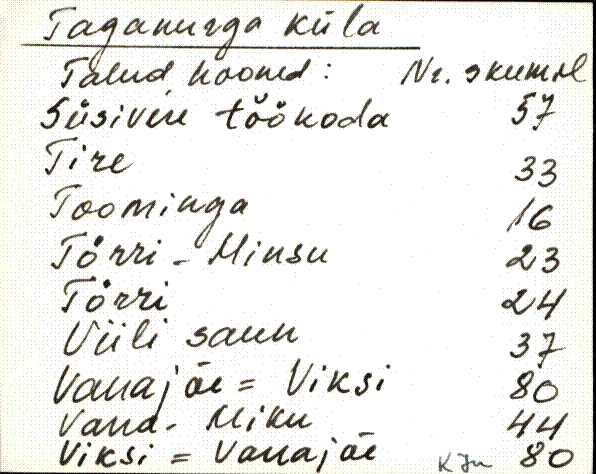 Taganurga küla
Talud, hooned: Nr. skeemil
Süsivere töökoda 57
Tire 33
Toominga 16
Tõrri - Minsu 23
Tõrri 24
Viili saun 37
Vanajõe = Viksi 80
Vana - Miku 44
Viksi = Vanajõe 80